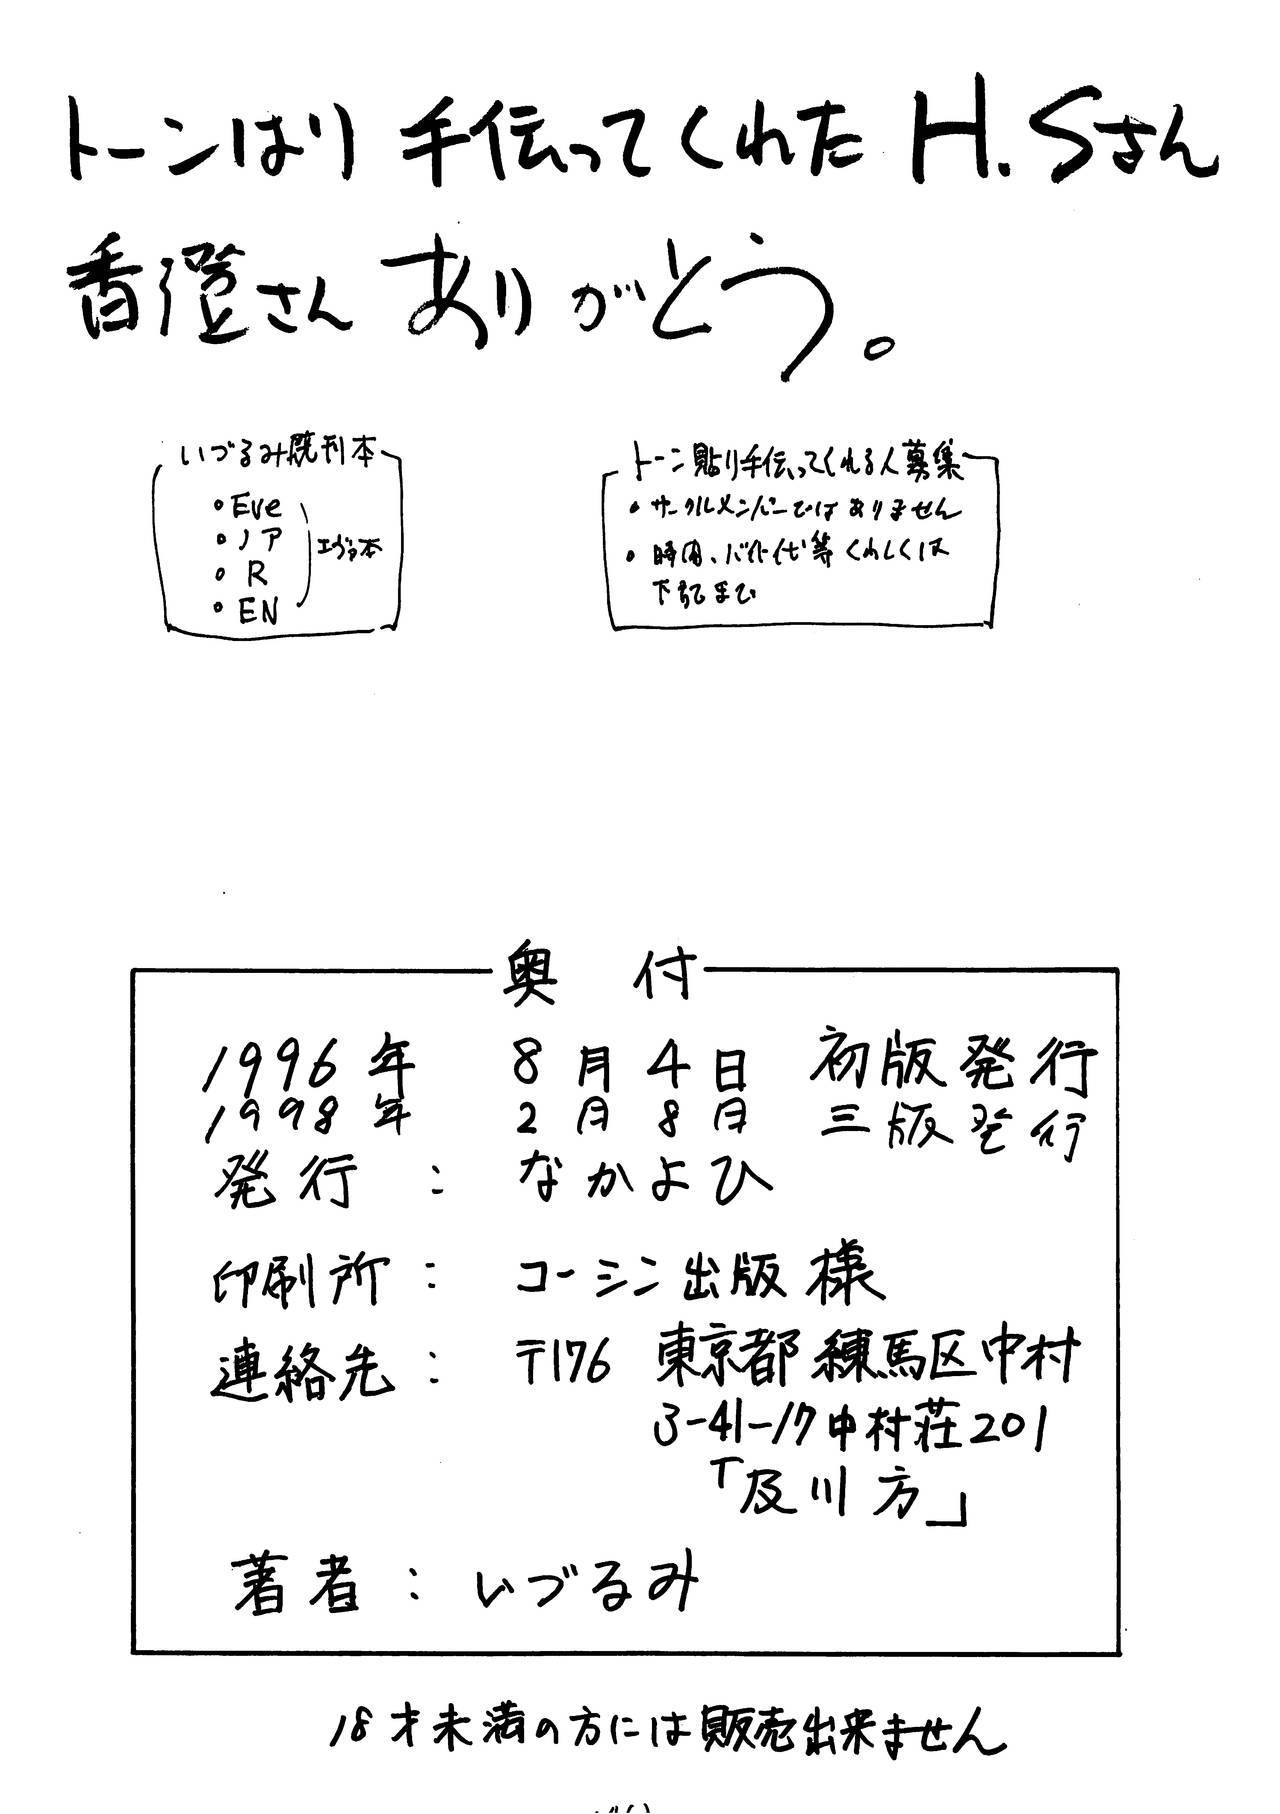 トーンはり 手伝ってくれた H.Sさん
香澄さん ありがとう。
いづるみ既刊本
・Eve
・ノア
・R
・EN
エヴァ本
トーン貼り手伝ってくれる人募集
・サークルメンバーではありません
・時間、バイト代等 くわしくは
下記まで
奥 付
1996年 8月4日 初版発行
1998年 2月8日 三版発行
発行 : なかよひ
印刷所 : コーシン出版 様
連絡先 : 〒176 東京都 練馬区中村
3-41-17 中村荘201
「及川方」
著者 : いづるみ
18才未満の方には販売出来ません